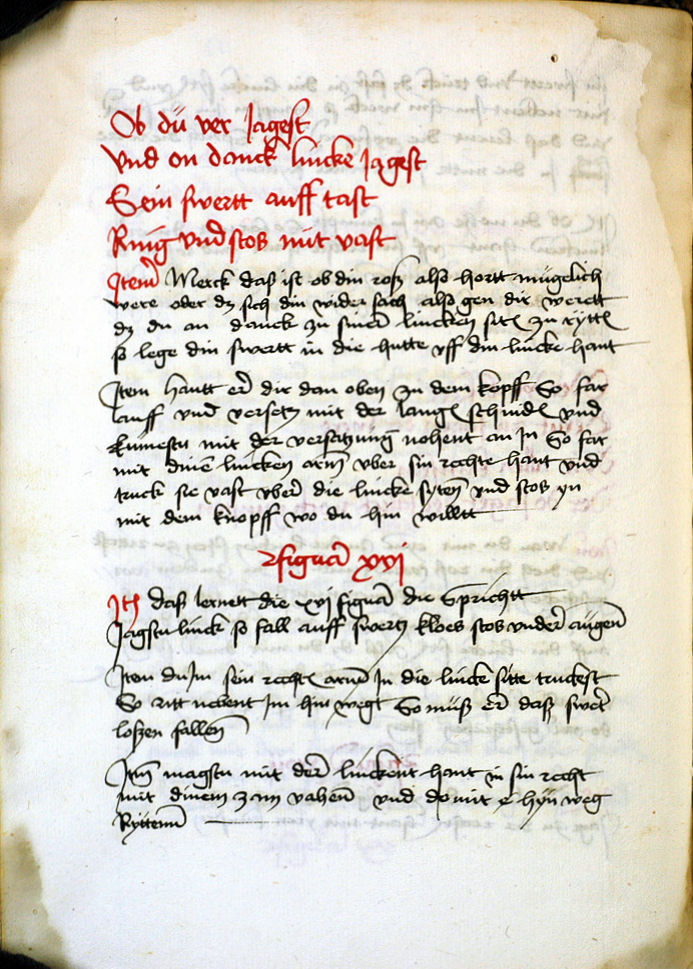 Ob dü ver Jagest
vnd on danck lincke Jagest
Sein swertt auff tast
Ring vnd stos mit vast
Item Merck daß ist ob din roß also hortt mügelich
were oder dz sich din wider sach also gen dir werett
dz du an danck zu siner lincken sitt zu rytt
so lege din swertt in die hutte vff din lincke hant
Item hautt er dir dan oben zu dem kopff So far
auff vnd versetz mit der lang schnid vnd
kümestu mit der versatzung nohent an In So far
mit dinen lincken arm vber sin rechte hant vnd
truck sie vast vber die lincke syten vnd stos yn
mit dem knopff wo du hin willtt
figura xvj
Itm daß lernett die xvj figura die Sprichtt
Jagstu linck so fall auff swertz kloes stos vnder augen
Item du Im sein recht arm In die lincke sitte truckest
So ritt nebent Im hin wegt So müß er daß swert
loßen fallen
Item magstu mit der linckent hant in sin recht
mit dinem zam vahen vnd do mit hyn weg
Ryttenn